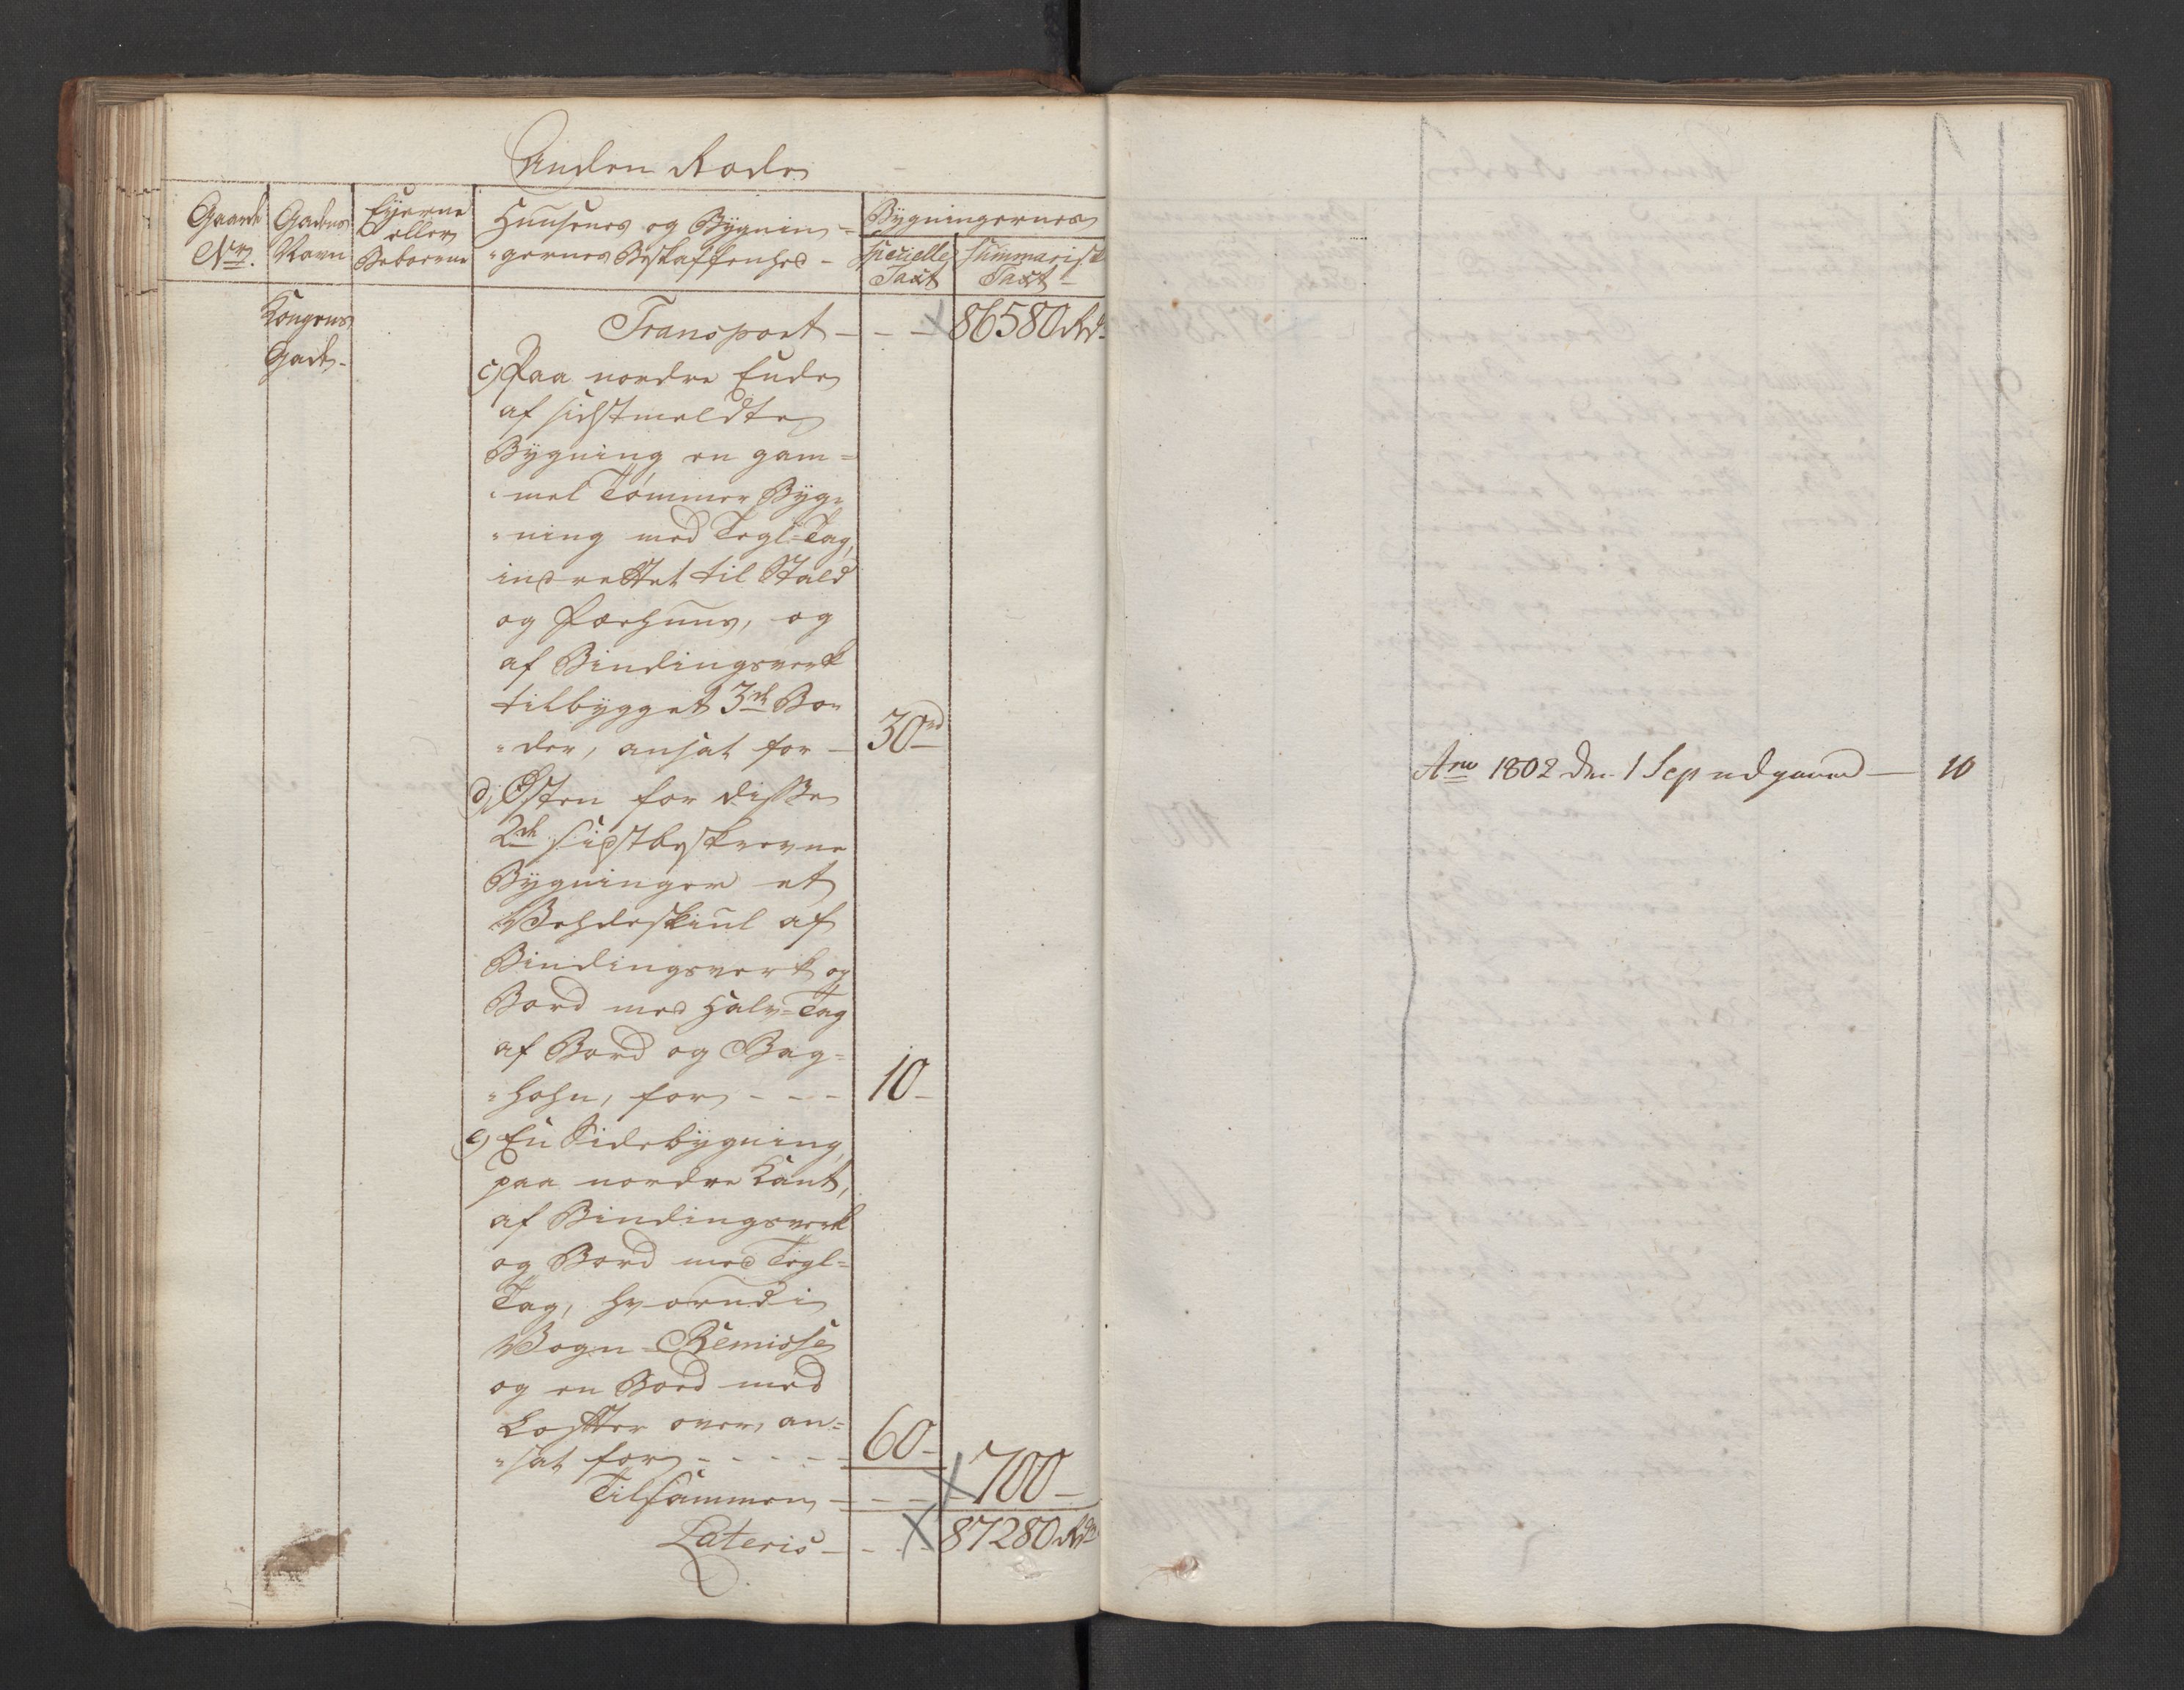 Anden Rode
Gaards Nr.
Gadens Navn
Eyerne eller Beboerne
Huusenes og Bygnin=
"gernes Beskaffenhed -
Bygningernes
specielle Taxt
summarisk Taxt
Kongens
Gade -
Transport - - - 86580 Rd
c) Paa nordre Ende
af sidstmeldte
Bygning en gam=
"mel Tømmer Byg=
"ning med Tegl-Tag,
indrettet til Stald
og Færhuus, og
af Bindingsverk
tilbygget 3de Bo=
"der, ansat for - 30 rd
d) Østen for disse
2de sidstbeskrevne
Bygninger et
Vehdeskiul af
Bindingsverk og
Bord med Halv-Tag
af Bord og Bag=
"hohn, for - - - 10 -
e) En Sidebygning,
paa nordre Kant,
af Bindingsverk
og Bord med Tegl=
Tag, hvorudi
Vogn-Remisse
og en Bod med
Loftter over, an=
"sat for - - - - 60 -
Tilsammen - - - 700 -
Lateris - - - 87280 Rd
Ano 1802 den 1 Sep udgaaed - 10